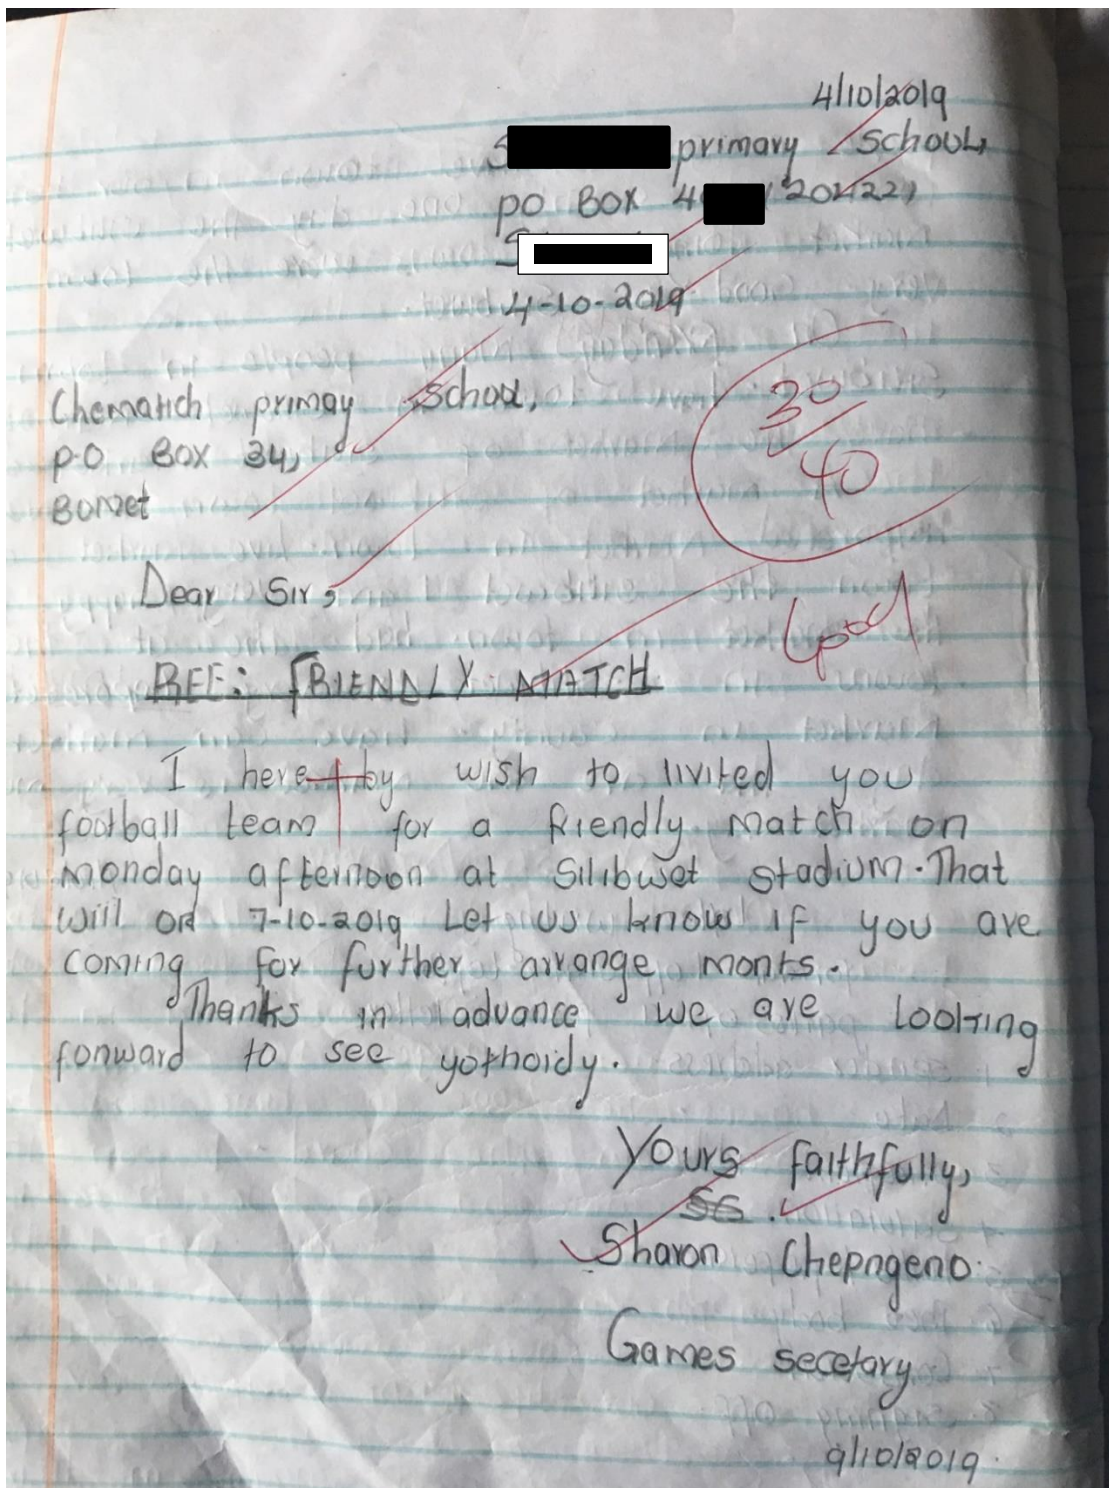 4/10/2019
S primary school,
po Box 4 20422,
S
4-10-2019
Chematich primay school,
p.o Box 34,
Bomet
30
40
Dear Sir,
Good
REF: FRIENDLY MATCH
I here by wish to livited you
football team for a friendly match on
monday afternoon at Silibwet stadium. That
will on 7-10-2019 Let us know if you are
coming for further arrange monts.
Thanks in advance we are looking
forward to see
Yours faithfully,
SG.
Sharon Chepngeno.
Games secetary
9/10/2019.